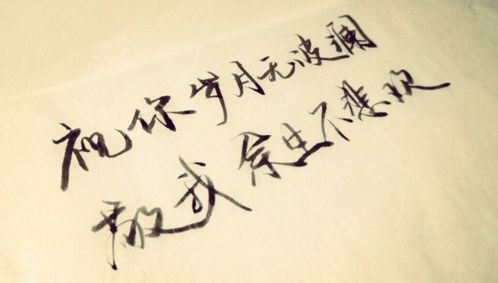 祝你岁月无波澜
敬我余生不悲欢